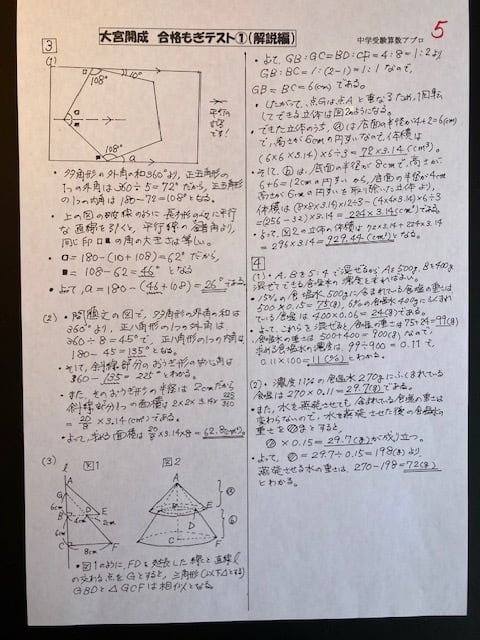 大宮開成 合格もぎテスト①(解説編)
中学受験算数アプロ
5
3
(1)
108°
10°
108°
a
平行の記号です!
・多角形の外角の和360°より、正五角形の
1つの外角は360÷5=72°だから、正五角形
の1つの内角は180-72=108°となる。
・上の図の点線のように長方形のよこに平行
な直線を引くと、平行線の錯角より、
同じ印□■の角の大きさは等しい。
・□=180-(10+108)=62°だから、
■=108-62=46°となる
・よって、a=180-(46+108)=26°である。
(2)・問題文の図で、多角形の外角の和は
360°より、正八角形の1つの外角は
360÷8=45°で、正八角形の1つの内角は
180-45=135°となる。
・そして、斜線部分のおうぎ形の中心角は
360-135=225°とわかる。
・また、そのおうぎ形の半径は2cmだから
斜線部分1つの面積は2×2×3.14×225/360
=20/8×3.14(cm²)である。
・よって、求める面積は20/8×3.14×8=62.8(cm²)。
(3)
図1
図2
l
A
6cm
B
4cm
D
E
2cm
6cm
C
8cm
F
A
E
B
D
C
F
あ
い
・図1のように、FDを延長した線と直線l
の交わる点をGとすると、三角形(以下△とする)
GBDと△GCFは相似となる。
・よって、GB:GC=BD:CF=4:8=1:2より
GB:BC=1:(2-1)=1:1なので、
GB=BC=6(cm)である。
・したがって、点Gは点Aと重なるため、1回転
してできる立体は図2のようになる。
・できた立体のうち、あは底面の半径が4+2=6(cm)
で、高さが6cmの円すいなので、体積は
(6×6×3.14)×6÷3=72×3.14(cm³)。
・そして、いは、底面の半径が8cmで、高さが
6+6=12cmの円すいから、底面の半径が4cm
高さが6cmの円すいを取り除いた立体より、
体積は(8×8×3.14)×12÷3-(4×4×3.14)×6÷3
=(256-32)×3.14=224×3.14(cm³)である。
・よって、図2の立体の体積は72×3.14+224×3.14
=296×3.14=929.44(cm³)となる。
4
(1)・A、Bを5:4で混ぜるからAを500g、Bを400g
混ぜてできる食塩水の濃度を求めればよい。
・15%の食塩水500gに含まれている食塩の重さは
500×0.15=75(g)、6%の食塩水400gにふくまれ
ている食塩は400×0.06=24(g)である。
・よって、これらを混ぜると食塩の重さは75+24=99(g)
食塩水の重さは500+400=900(g)なので、
求める食塩水の濃度は、99÷900=0.11で、
0.11×100=11(%)とわかる。
(2)・濃度11%の食塩水270gにふくまれている
食塩は270×0.11=29.7(g)である。
・また、水を蒸発させても、含まれている食塩の重さは
変わらないので、水を蒸発させた後の食塩水の
重さを
gとすると、
×0.15=29.7(g)が成り立つ。
・よって、
=29.7÷0.15=198(g)より、
蒸発させる水の重さは、270-198=72(g)
とわかる。